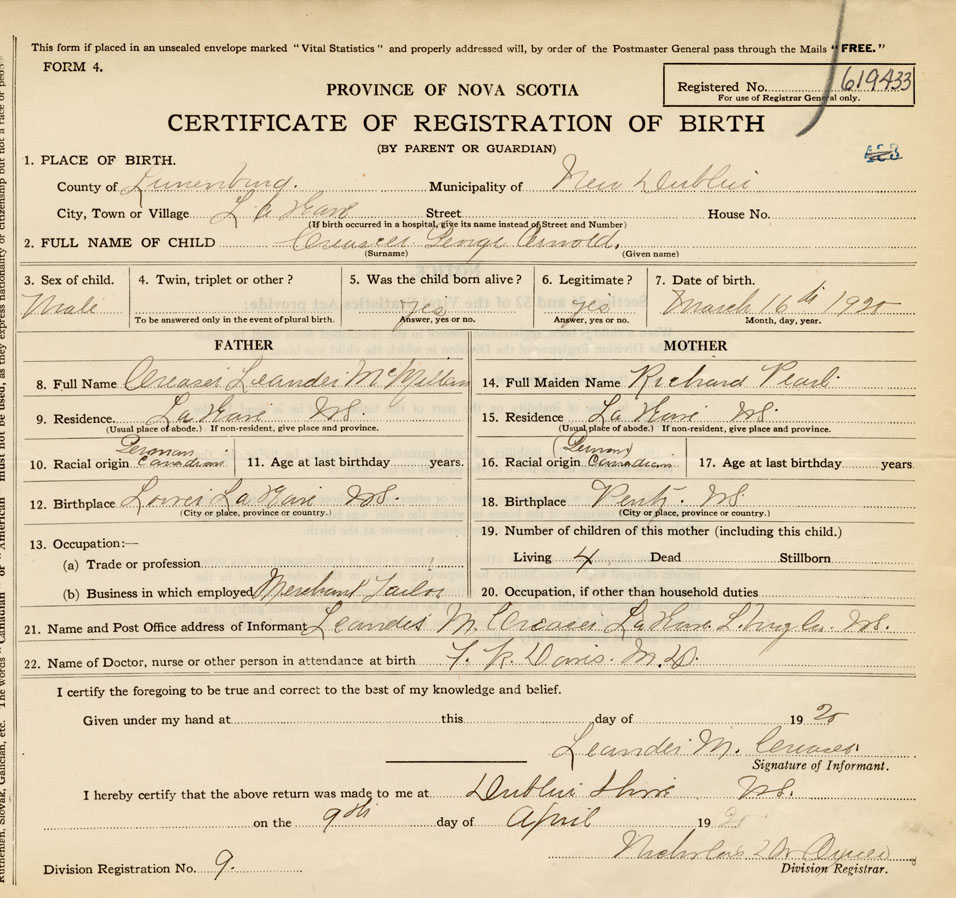 This form if placed in an unsealed envelope marked "Vital Statistics" and properly addressed will, by order of the Postmaster General pass through the Mails "FREE."
FORM 4.
Registered No. 619433
For use of Registrar General only.
PROVINCE OF NOVA SCOTIA
CERTIFICATE OF REGISTRATION OF BIRTH
(BY PARENT OR GUARDIAN)
1. PLACE OF BIRTH.
County of Lunenburg. Municipality of New Dublin
City, Town or Village La Have Street House No.
(If birth occurred in a hospital, give its name instead of Street and Number)
2. FULL NAME OF CHILD Creaser George Arnold.
(Surname) (Given name)
3. Sex of child. 4. Twin, triplet or other? 5. Was the child born alive? 6. Legitimate? 7. Date of birth.
Male yes yes March 16th 1920
To be answered only in the event of plural birth. Answer, yes or no. Answer, yes or no. Month, day, year.
FATHER MOTHER
8. Full Name Creaser Leander McMillan 14. Full Maiden Name Richard Pearl
9. Residence. La Have NS. 15. Residence. La Have NS.
(Usual place of abode.) If non-resident, give place and province. (Usual place of abode.) If non-resident, give place and province.
German (German)
10. Racial origin Canadian 11. Age at last birthday years. 16. Racial origin Canadian 17. Age at last birthday years
12. Birthplace Lower La Have NS. 18. Birthplace Pentz. NS
(City or place, province or country.) (City or place, province or country.)
19. Number of children of this mother (including this child.)
13. Occupation:—
Living 4 Dead Stillborn
(a) Trade or profession
(b) Business in which employed Merchant Tailor 20. Occupation, if other than household duties
21. Name and Post Office address of Informant Leander M. Creaser La Have NS.
22. Name of Doctor, nurse or other person in attendance at birth Davis. M.D.
I certify the foregoing to be true and correct to the best of my knowledge and belief.
Given under my hand at this day of 1920
Leander M. Creaser.
Signature of Informant.
I hereby certify that the above return was made to me at Dublin Shore NS.
on the 9th day of April 1920
Nicholas
Division Registration No. 9. Division Registrar.